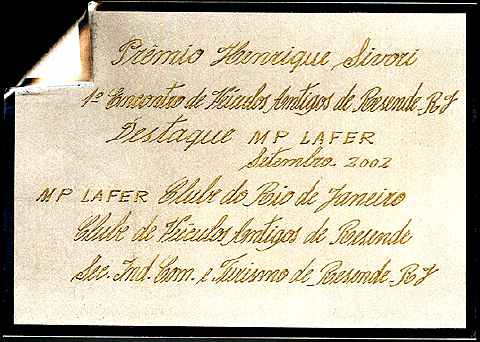 Prêmio Henrique Sivori
1º Encontro de Veículos Antigos de Resende-RJ
Destaque MP LAFER
Setembro 2002
MP LAFER Clube do Rio de Janeiro
Clube de Veículos Antigos de Resende
Sec. Ind. Com. e Turismo de Resende-RJ